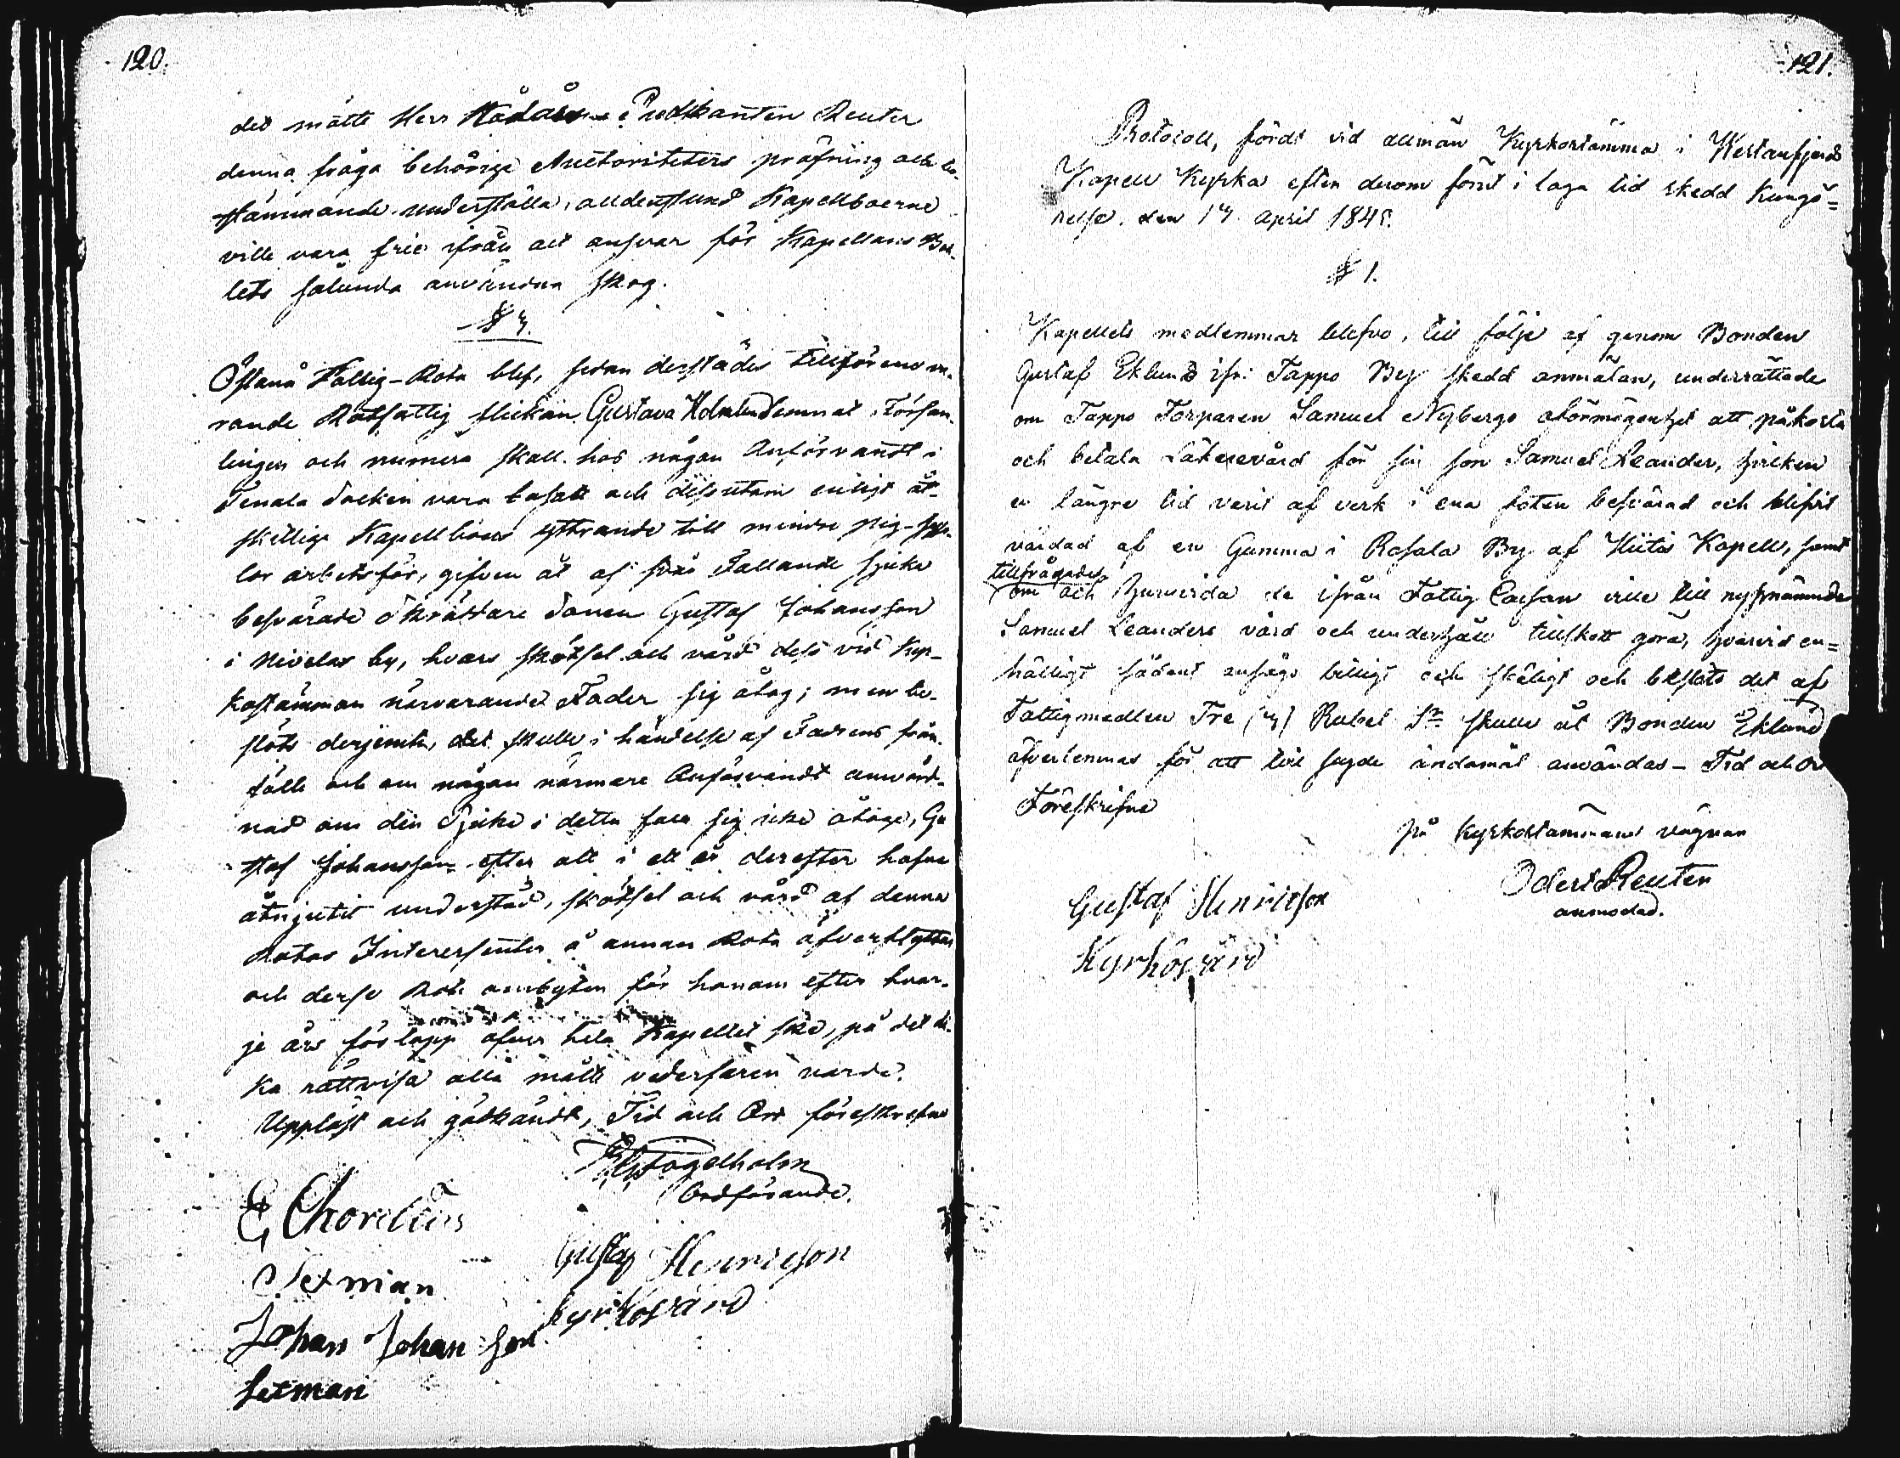 120.
det måtte Herr Nådårs-Predikanten Reuter
denna fråga behörige Auctoriteters pröfning och be-
stämmande underställa, alldenstund Kapellboerne
ville vara frie ifrån allt ansvar för Kapellans Bol-
lets sålunda användna skog.
§ 3.
Östanå Fattig-Rota blef, sedan derstädes tillförene va-
rande Rotfattig flickan Gustava Holmlund emnat i Församlingen
lingen och numera skall hos någon Anförvandt i
Tenala Socken vara bosatt och dessutom enligt åt-
skillige Kapellboers yttrande till mindre sig-sys-
lor arbetsför, gifven åt af Fallande sjuka
besvärade Skräddare Sonen Gustaf Johansson
i Nivelax by, hvars skötsel och vård dess vid Kyr-
kostämman närvarande Fader sig åtog; men be-
slöts derjemte, det skulle i händelse af Fadrens från-
fälle och om någon närmare Anförvandt
om den Sjuke i detta fall sig icke åtoge, Gu-
staf Johansson efter att i ett år derefter hafva
åtnjutit understöd, skötsel och vård af denna
Rotas Interessenter å annan Rota öfverflyttas
och derse Rote ombyten för honom efter hvar-
je års förlopp öfver hela Kapellet ske, på det li-
ka rättvisa alla måtte vederfaren varda.
Uppläst och godkändt, Tid och Ort förestrefne
Fogelholm
Ordförande.
E Chorelius
Sexman
Gustaf Henricson
Kyrkovärd
Johan Johan Son
Sexman
121.
Protocoll, fördt vid allmän Kyrkostämma i Westanfjerds
Kapell Kyrka efter derom förut i laga tid skedd kungö=
relse. den 14 april 1848.
§ 1.
Kapellets medlemmar blefvo, till följe af genom Bonden
Gustaf Eklund ifr: Tappo By skedd anmälan, underrättade
om Tappo Torparen Samuel Nybergs oförmögenhet att påkosta
och betala Läkarevård för sin son Samuel Leander, hvilken
en längre tid varit af verk i ena foten besvärad och blifvit
vårdad af en Gumma i Rosala By af Hitis Kapell, samt
tillfrågades
om och huruvida de ifrån Fattig Cassan ville till nyssnämnde
Samuel Leanders vård och underhåll tillskott göra, hvarvid en=
hälligt sådant ansågs billigt och skäligt och beslöts det af
Fattigmedlen Tre (3) Rubel Sr skulle åt Bonden Eklund
öfverlemnas för att till sagde ändamål användas – Tid och Ort
Föreskrifne
på Kyrkostämmans vägnar
Odert Reuter
anmodad.
Gustaf Henricson
Kyrkovärd